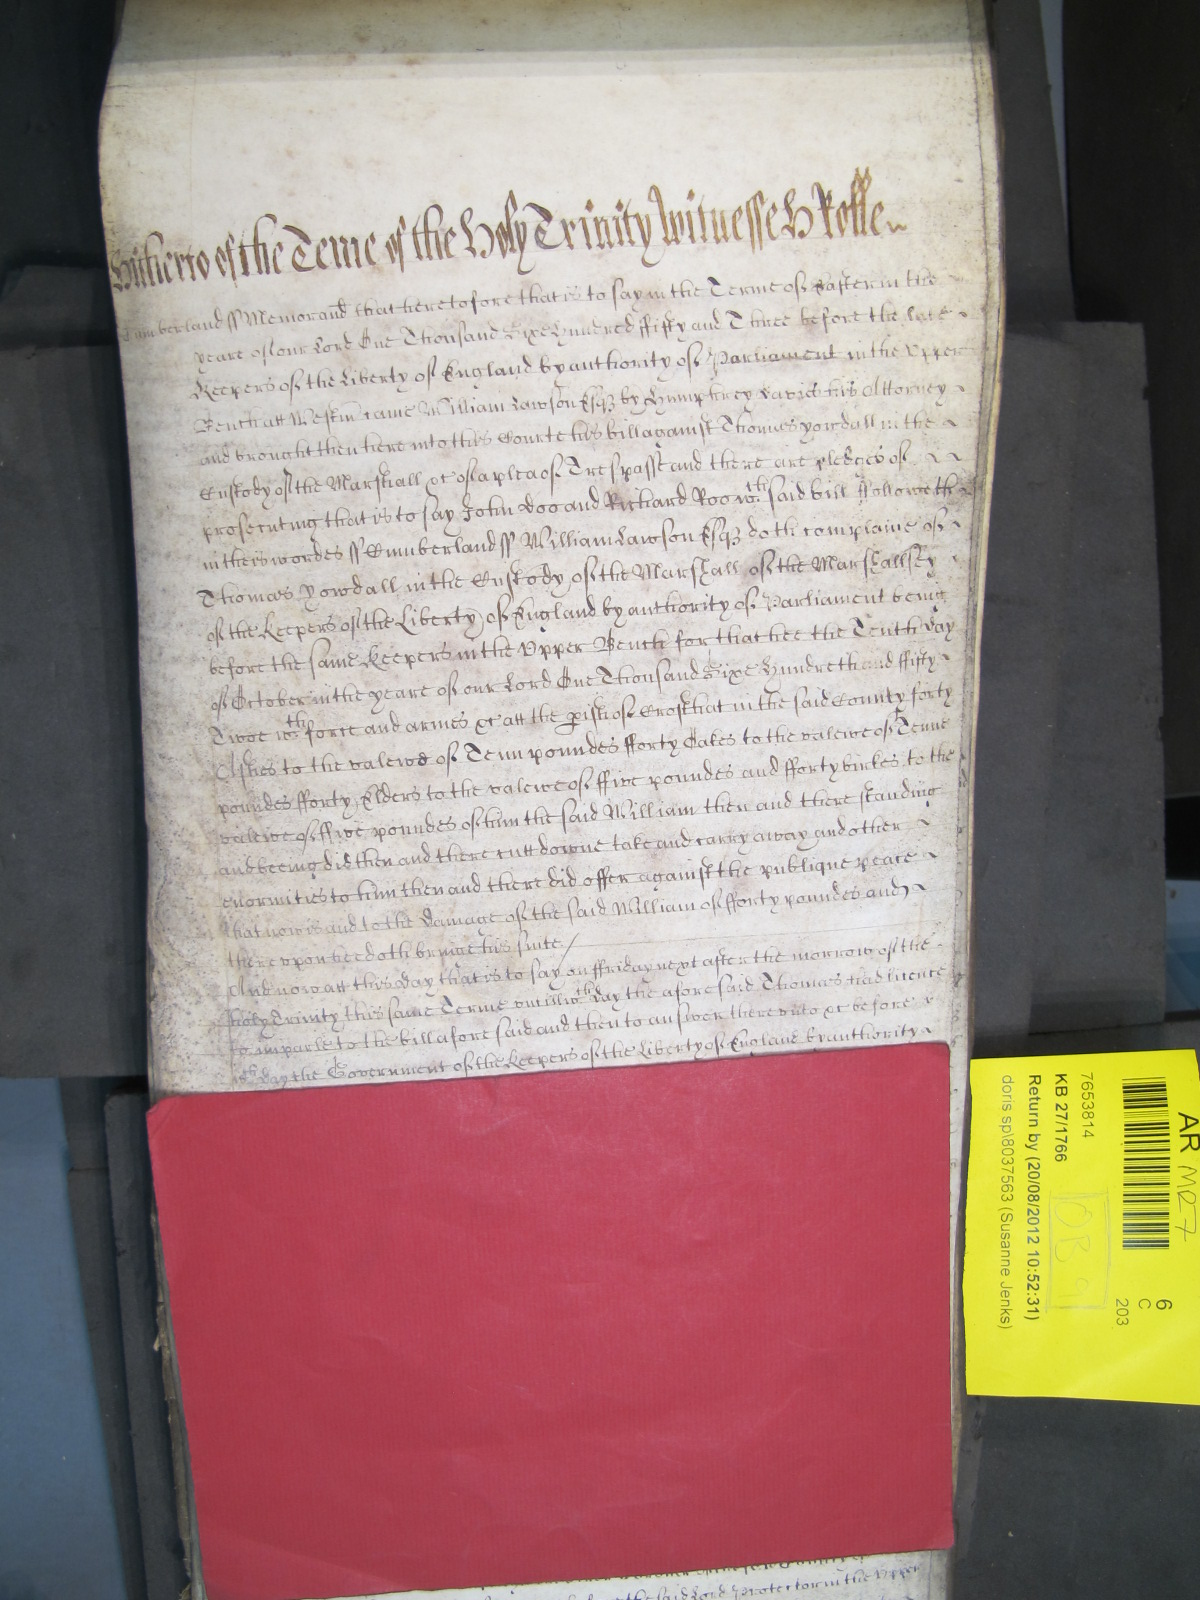 Hitherto of the Terme of the Holy Trinity Witnesse H Rolle
Cumberland ss Memorand that heretofore that is to say in the Terme of Easter in the
yeare of our Lord One Thousand Sixe Hundred ffifty and Three before the late
Keepers of the Liberty of England by authority of Parliament in the Upper
Bench att Westm came William Lawson Esqz by Humphrey his Attorney
and brought then here into this Courte his bill against Thomas Yowdall in the
Custody of the Marshall &c of a plea of Trespasse and there are pledges of
prosecuting that is to say John Doo and Richard Roo wch said bill ffolloweth
in theis wordes ss Cumberland ss William Lawson Esqz doth complaine of
Thomas Yowdall in the Custody of the Marshall of the Marshallsey
of the Keepers of the Liberty of England by authority of Parliament being
before the same Keepers in the Upper Bench for that hee the Tenth day
of October in the yeare of our Lord One Thousand Sixe Hundreth and ffifty
Twoe wth force and armes &c att the pish of Crosthat in the said County forty
Ashes to the valewe of Tenn poundes fforty Oakes to the valewe of Tenne
poundes fforty Elders to the valewe of ffive poundes and fforty birkes to the
valewe of ffive poundes of him the said William then and there standing
and beeing did then and there cutt downe take and carry away and other
enormities to him then and there did offer against the publique peace
that now is and to the damage of the said William of fforty poundes and
there upon hee doth bringe his suite
And now att this day that is to say on ffriday next after the morrow of the
holy Trinity this same Terme untill wch day the afore said Thomas had licence
to imparle to the bill afore said and then to answer there unto &c before
wch day the Government of the Keepers of the Liberty of England by authority
the said Lord Protector in the Upper
AR MR7
6
C
203
7653814
KB 27/1766
Return by (20/08/2012 10:52:31)
doris sp\8037563 (Susanne Jenks)